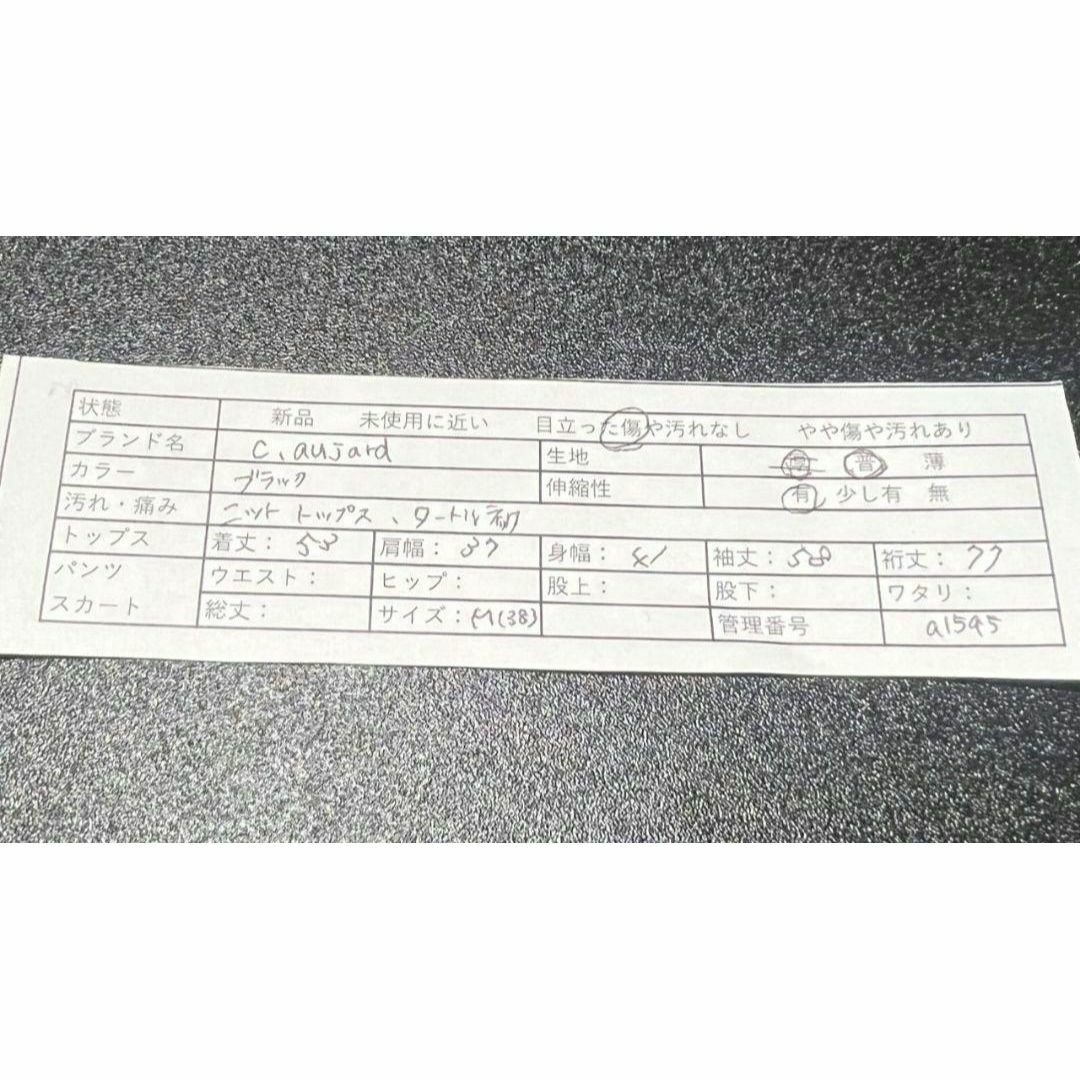 状態 新品 未使用に近い 目立った傷や汚れなし やや傷や汚れあり
ブランド名 C.aujard 生地 厚 普 薄
カラー ブラック 伸縮性 有 少し有 無
汚れ・痛み ニット トップス、タートル
トップス 着丈：53 肩幅：37 身幅：41 袖丈：58 裄丈：77
パンツ ウエスト： ヒップ： 股上： 股下： ワタリ：
スカート 総丈： サイズ：M(38) 管理番号 a1545